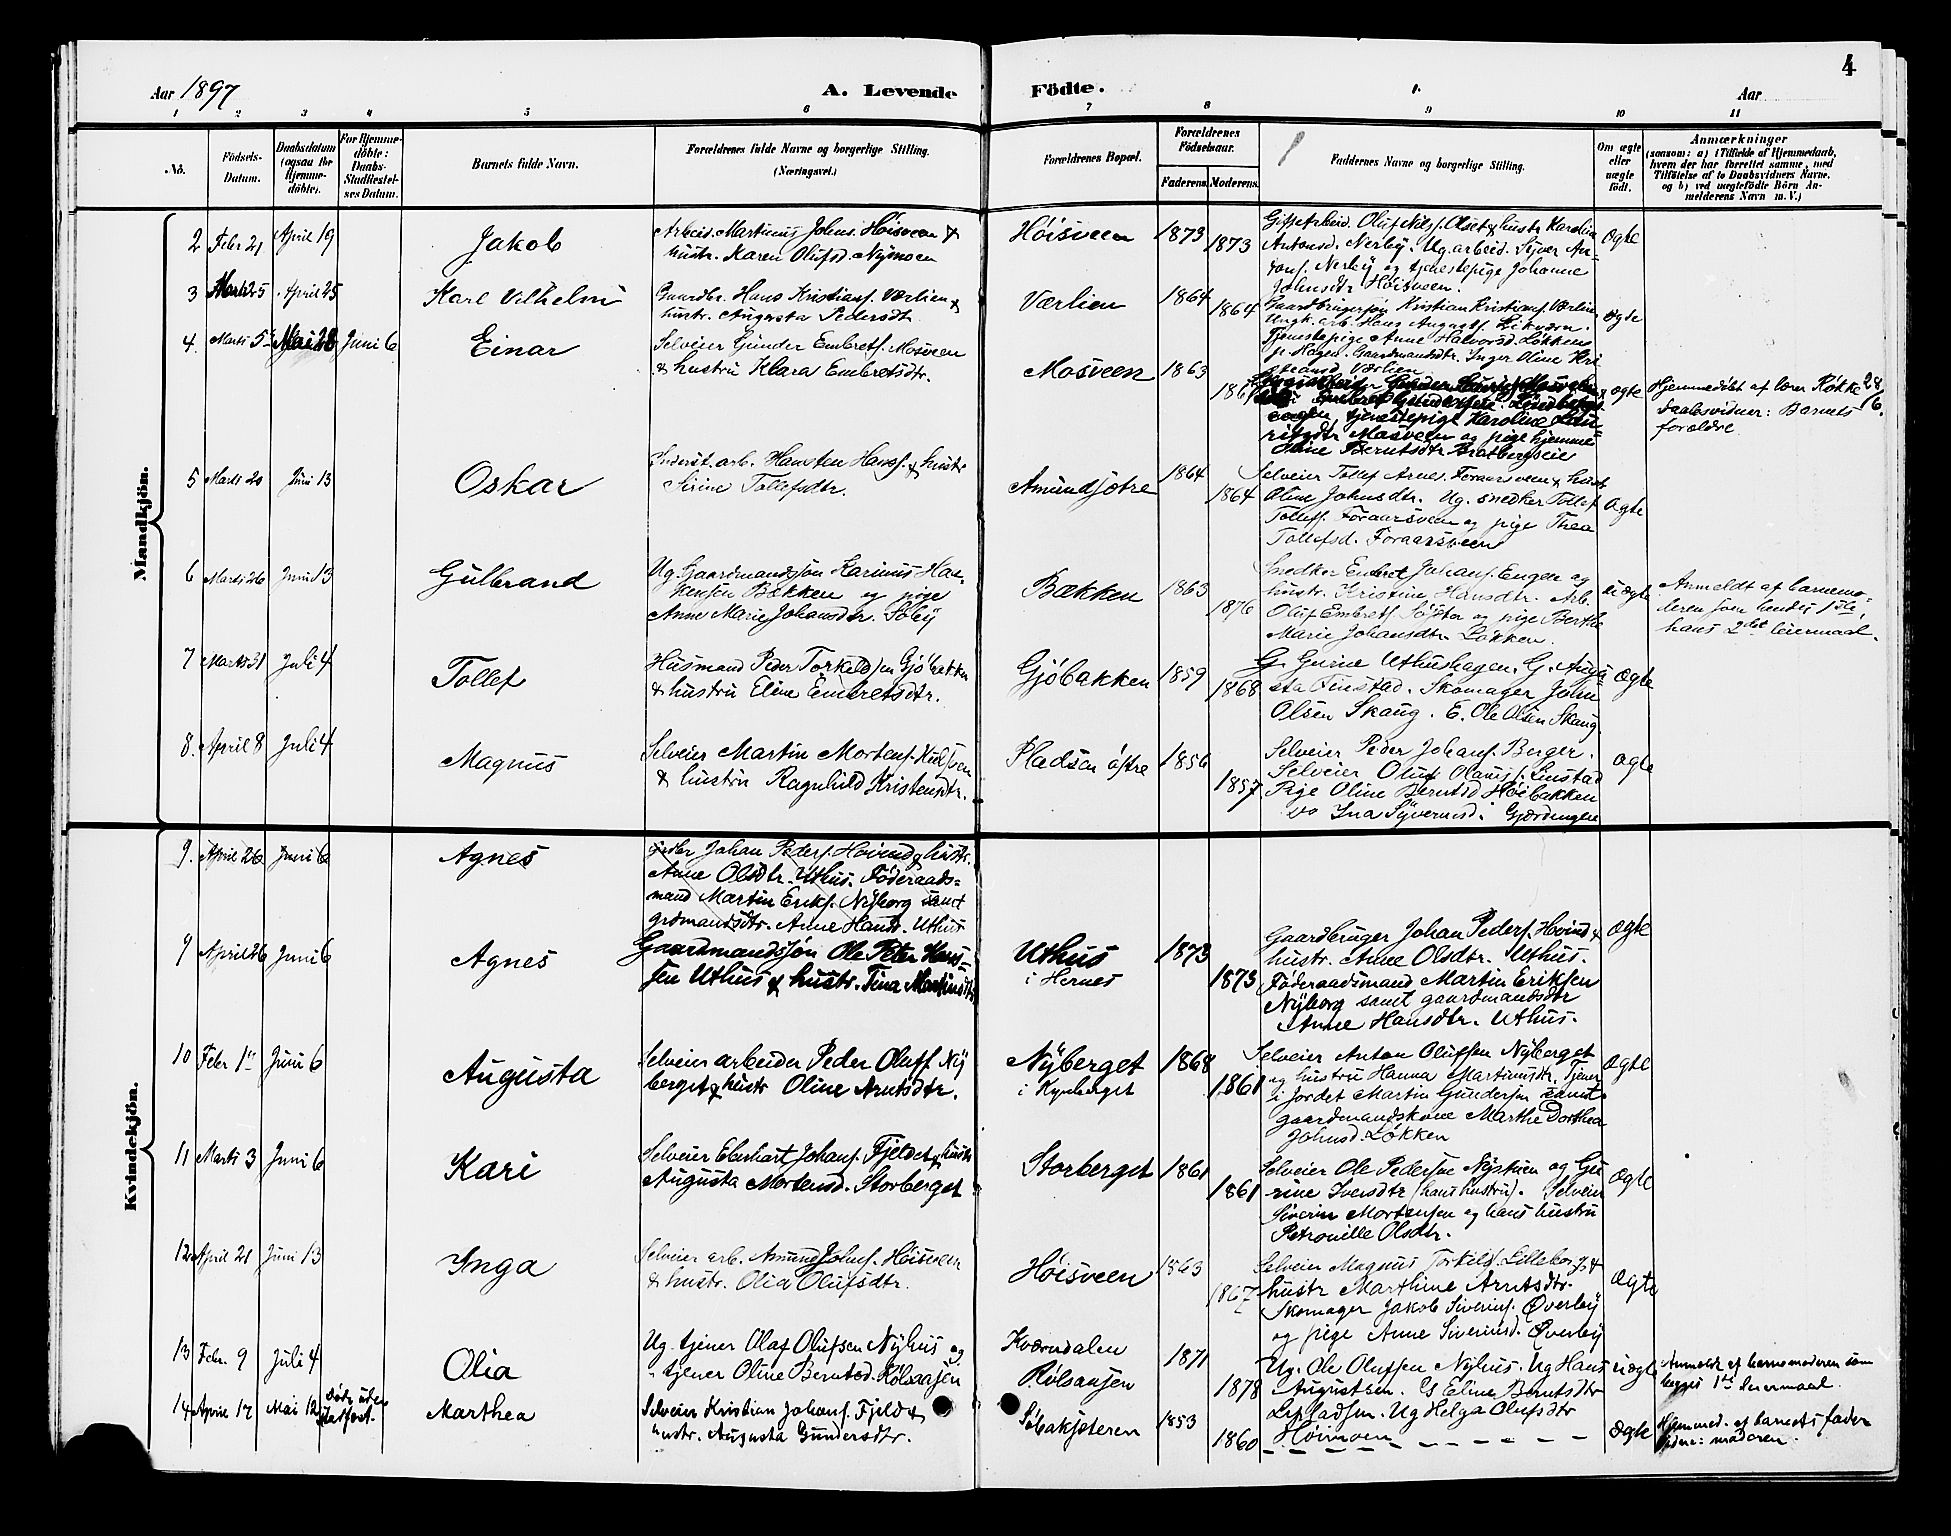 4
Aar 1897
A. Levende Födte.
Aar
1 2 3 4 5 6 7 8 9 10 11
No.
Födsels-Datum.
Daabsdatum (ogsaa for Hjemme-döbte).
For Hjemme-döbte: Daabs-Stadfæstel-ses Datum.
Barnets fulde Navn.
Forældrenes fulde Navne og borgerlige Stilling.
(Næringsvei.)
Forældrenes Bopæl.
Forældrenes Födselsaar.
Faderens. Moderens.
Faddernes Navne og borgerlige Stilling.
Om ægte eller uægte födt.
Anmærkninger
(saasom: a) i Tilfælde af Hjemmedaab,
hvem der har forrettet samme, med
Tilföielse af to Daabsvidners Navne,
og b) ved uægtefödte Börn An-
melderens Navn m. V.)
Mandkjön.
2 Febr 21 April 19 Jakob
Arbeid. Martinus Johns. Høisveen &
hustr. Karen Olufsd. Nymoen
Høisveen 1873 1873
Gift arbeid. Oluf Nils. Olset & hustr Karoline
Antonsd. Nerby. Ug. arbeid. Syver An-
tons. Nerby og tjenestepige Johanne
Johnsdtr Høisveen.
ægte
3 Marts 25 April 25 Karl Vilhelm
Gaardbr. Hans Kristians. Værlien &
hustr. Augusta Pedersdt.
Værlien 1864 1864
Gaardbrugersøn Kristian Kristians. Værlien
Ungk. arb. Hans Augusts.
Tjenestepige Anne Halvorsd. Løkken
p. Hagen. Gaardmandsdtr. Inger Oline Kri
stiansd. Værlien
ægte
4. Marts 5te Mai 28 Juni 6 Einar
Selveier Gunder Embrets. Mosveen
& hustru Klara Embretsdtr.
Mosveen 1863 1861
tjenestepige Karoline
Mosveen og pige hjemme
Berntsdtr Bratbergseie
ægte
Hjemmedøbt af lærer Røkke 28/6.
Daabsvidner: Barnets
forældre
5 Marts 20 Juni 13 Oskar
Inderst. arb. Hans. & hustr
Sirine Tollefsdtr.
Amundsætre 1864 1864
Selveier Tollef Arnes. Foraarsveen & hustr
Oline Johnsdtr. Ug. snedker Tollef
Tollefs. Foraarsveen og pige Thea
Tollefsd. Foraarsveen
ægte
6 Marts 26 Juni 13 Gulbrand
Ug. Gaardmandssøn Karinus Han-
Bækken og pige
Anne Marie Johansdtr. Søby
Bækken 1863 1876
Snedker Embret Johans. Enger og
hustr. Kristine Hansdtr. Arb.
Oluf Embrets. og pige Berthe
Marie Johansdtr Løkken.
uægte
Anmeldt af barnemo-
deren som hendes 1ste,
hans 2det leiermaal.
7 Marts 31 Juli 4 Tollef
Husmand Peder Torkeldsen Gjøbakken
& hustru Eline Embretsdtr.
Gjøbakken 1859 1868
G. Gurine Uthushagen. G. Augu
sta Finstad. Skomager John
Olsen Skaug. E. Ole Olsen Skaug.
ægte
8. April 8 Juli 4 Magnus
Selveier Martin Mortens.
& hustru Ragnhild Kristensdtr.
Pladsen østre 1856 1857
Selveier Peder Johans. Berger.
Selveier Oluf Olaus.
Pige Oline Berntsd Høibakken
do Ina Syversd. Gjærdingen
ægte
Kvindekjön.
9. April 26 Juni 6 Agnes
Johan Peders. Hovind & hustr.
Anne Olsdtr. Uthus. Føderaads-
mand Martin Eriks. Nyborg samt
grdmandsdtr. Anne Hansd. Uthus
9 April 26 Juni 6 Agnes
Gaardmandssøn Ole Peter Hans-
sen Uthus & hustr. Tina Martinsdtr
Uthus
i Hernes
1873 1873
Gaardbruger Johan Peders. Hovind &
hustr. Anne Olsdtr. Uthus.
Føderaadsmand Martin Eriksen
Nyborg samt gaardmandsdtr
Anne Hansdtr. Uthus.
ægte
10 Febr 1te Juni 6 Augusta
Selveier arbeider Peder Olufs. Ny
berget & hustr Oline Arntsdtr.
Nyberget
i Kynberget
1868 1861
Selveier Anton Olufsen Nyberget
og hustru Hanna Martinusdtr. Tjener
i Jordet Martin Gundersen samt
gaardmandskone Marthe Dorthea
Johnsd. Løkken
ægte
11 Marts 3 Juni 6 Kari
Selveier Eberhart Johans. Fjeldet & hustr
Augusta Mortensd. Storberget
Storberget 1861 1861
Selveier Ole Pedersen Nystuen og Gu
rine Iversdtr (hans hustru). Selveier
Siverin Mortensen og hans hustru
Petronille Olsdtr.
ægte
12 April 21 Juni 13 Inga
Selveier arb. Amund Johns. Høisveen
& hustr. Olia Olufsdtr.
Høisveen 1863 1867
Selveier Magnus Torkilds. Lilleborg &
hustr Marthine Arntsdtr.
Skomager Jakob Siverins. Øverby
og pige Anne Siverinsd. Øverby
ægte
13 Febr. 9 Juli 4 Olia
Ug. tjener Olaf Olufsen Nyhus og
tjener Oline Berntsd. Rølsaasen
Kværndalen
Rølsaasen
1871 1878
Ug. Ole Olufsen Nyhus. Ug Hans
Augustsen. G Eline Berntsdtr
Ug Helga Olufsdtr
Høimoen
uægte
Anmeldt af barnemoderen som
begges 1ste leiermaal.
14 April 17 Mai 12 Døde uden stadfæst. Marthea
Selveier Kristian Johans. Fjeld &
hustr. Augusta Gundersdtr.
Søbaksæteren 1853 1860
ægte
Hjemmed. af barnets fader
moderen.